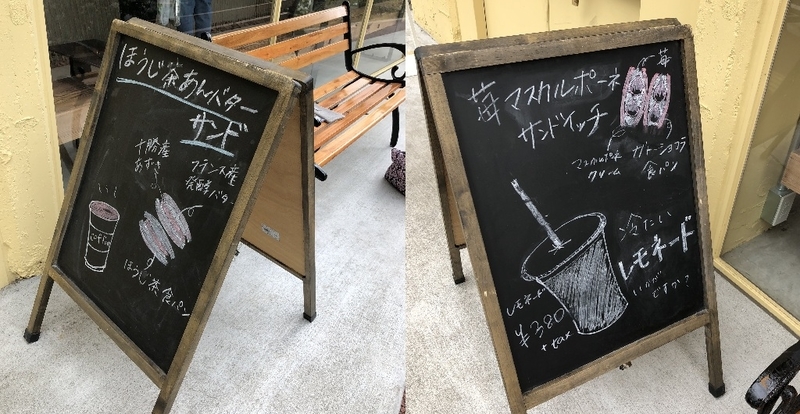 ほうじ茶あんバター
サンド
十勝産
あずき
フランス産
発酵バタ
ほうじ茶食パン
苺マスカルポーネ
サンドイッチ
苺
マスカルポーネ
クリーム
ガトーショコラ
食パン
冷たい
レモネード
いかが
ですか?
レモネード
¥380
+tax